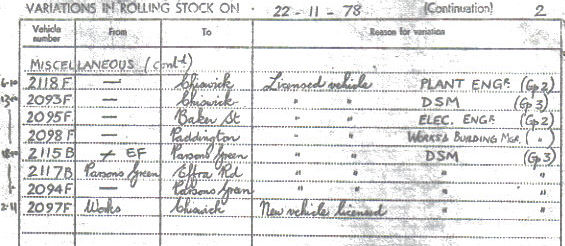 VARIATIONS IN ROLLING STOCK ON · 22-11-78 (Continuation) 2
Vehicle number From To Reason for variation
MISCELLANEOUS (contd)
6-10 2118F — Chiswick Licensed vehicle PLANT ENGR. (Gp2)
2093F — Chiswick " " DSM (Gp3)
2095F — Baker St " " ELEC. ENGR. (Gp2)
2098F — Paddington " " WORKS & BUILDING MGR. ( " )
2115B EF Parsons Green " " DSM (Gp3)
2117B Parsons Green Effra Rd " " " "
2094F — Parsons Green " " " "
2-11 2097F Works Chiswick New vehicle licensed " "